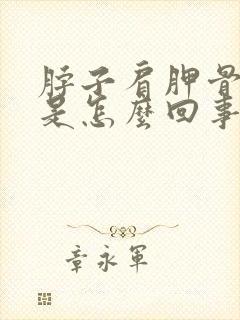 脖子肩胛骨
是怎麼回事
章永軍